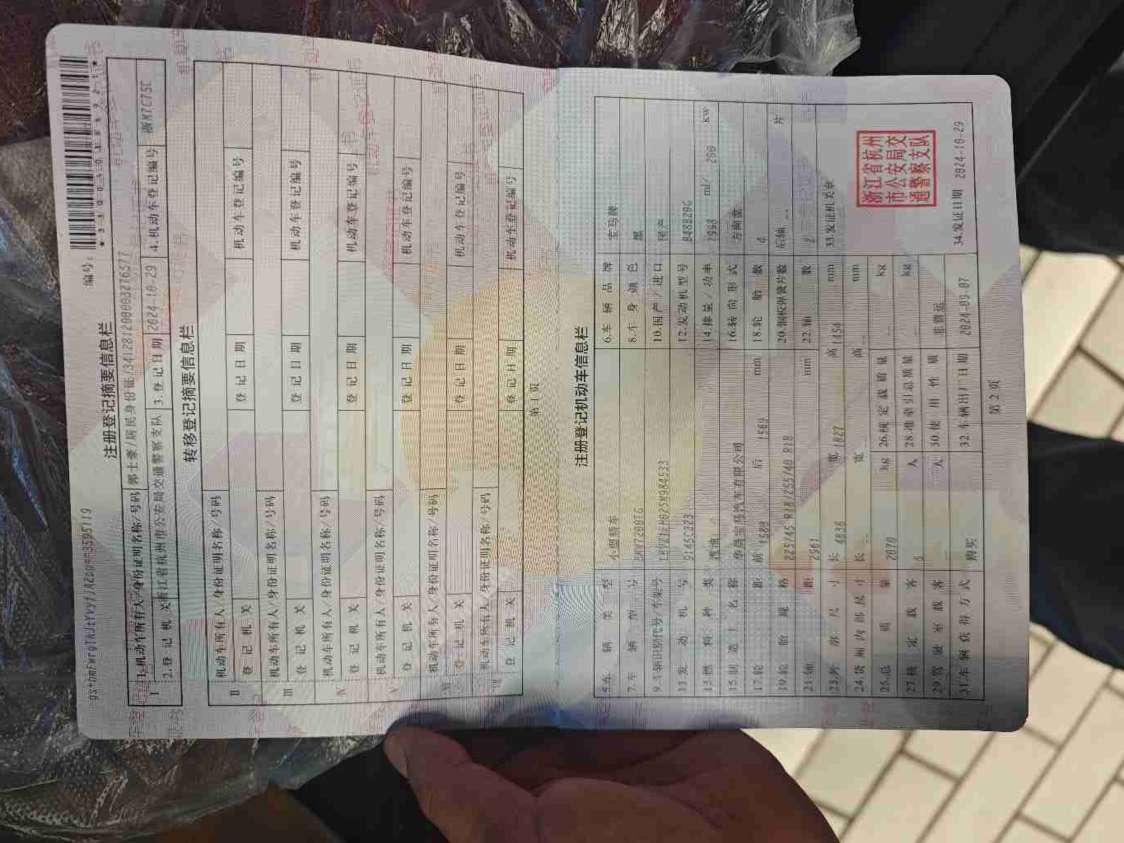 编号:
注册登记摘要信息栏
I 1.机动车所有人/身份证明名称/号码 郭士豪/居民身份证/
2.登记机关 浙江省杭州市公安局交通警察支队 3.登记日期 2024-10-29 4.机动车登记编号
转移登记摘要信息栏
II 机动车所有人/身份证明名称/号码
登记机关 登记日期 机动车登记编号
III 机动车所有人/身份证明名称/号码
登记机关 登记日期 机动车登记编号
IV 机动车所有人/身份证明名称/号码
登记机关 登记日期 机动车登记编号
V 机动车所有人/身份证明名称/号码
登记机关 登记日期 机动车登记编号
机动车所有人/身份证明名称/号码
登记机关 登记日期 机动车登记编号
机动车所有人/身份证明名称/号码
登记机关 登记日期 机动车登记编号
第1页
注册登记机动车信息栏
5.车辆类型 小型轿车 6.车辆品牌 宝马牌
7.车辆型号 8.车身颜色 黑
9.车辆识别代号/车架号 10.国产/进口 国产
11.发动机号 12.发动机型号 B48B20G
13.燃料种类 汽油 14.排量/功率 1998 ml/ 200 kw
15.制造厂名称 华晨宝马汽车有限公司 16.转向形式 方向盘
17.轮距 前 1580 后 1569 mm 18.轮胎数 4
19.轮胎规格 225/45 R18/255/40 R18 20.钢板弹簧片数 后轴 片
21.轴距 2961 mm 22.轴数 2
23.外廓尺寸 长 4838 宽 1827 高 1454 mm 33.发证机关章
24.货厢内部尺寸 长 宽 高 mm
浙江省杭州
市公安局交
通警察支队
25.总质量 2070 kg 26.核定载质量 kg
27.核定载客 5 人 28.准牵引总质量 kg
29.驾驶室载客 人 30.使用性质 非营运
31.车辆获得方式 购买 32.车辆出厂日期 2024-09-07 34.发证日期 2024-10-29
第2页